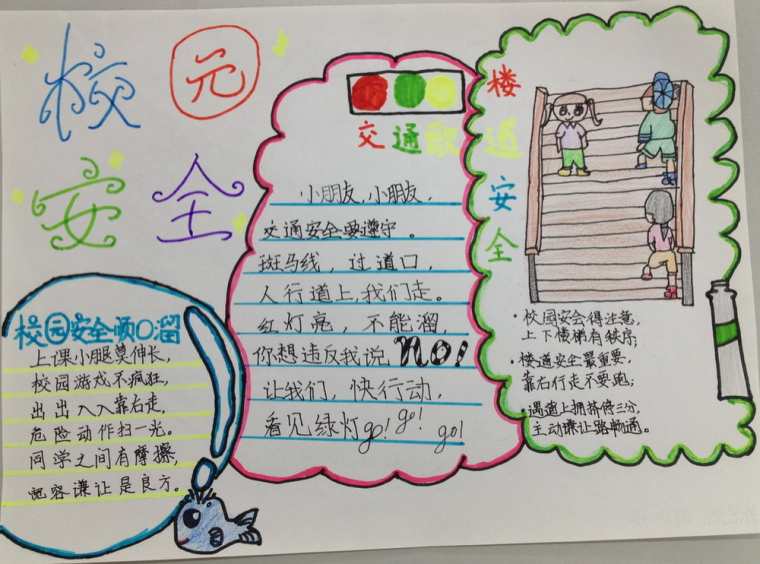 校园
安全
校园安全顺口溜
上课小腿莫伸长,
校园游戏不疯狂,
出出入入靠右走,
危险动作扫一光。
同学之间有摩擦,
宽容谦让是良方。
交通歌
小朋友,小朋友,
交通安全要遵守。
斑马线,过道口,
人行道上,我们走。
红灯亮,不能溜,
你想违反我说NO!
让我们,快行动,
看见绿灯go! go! go!
楼道
安
全
·校园安会得注意,
上下楼梯有秩序;
·楼道安全最重要,
靠右行走不要跑;
·遇道上拥挤停三分,
主动谦让路畅通。